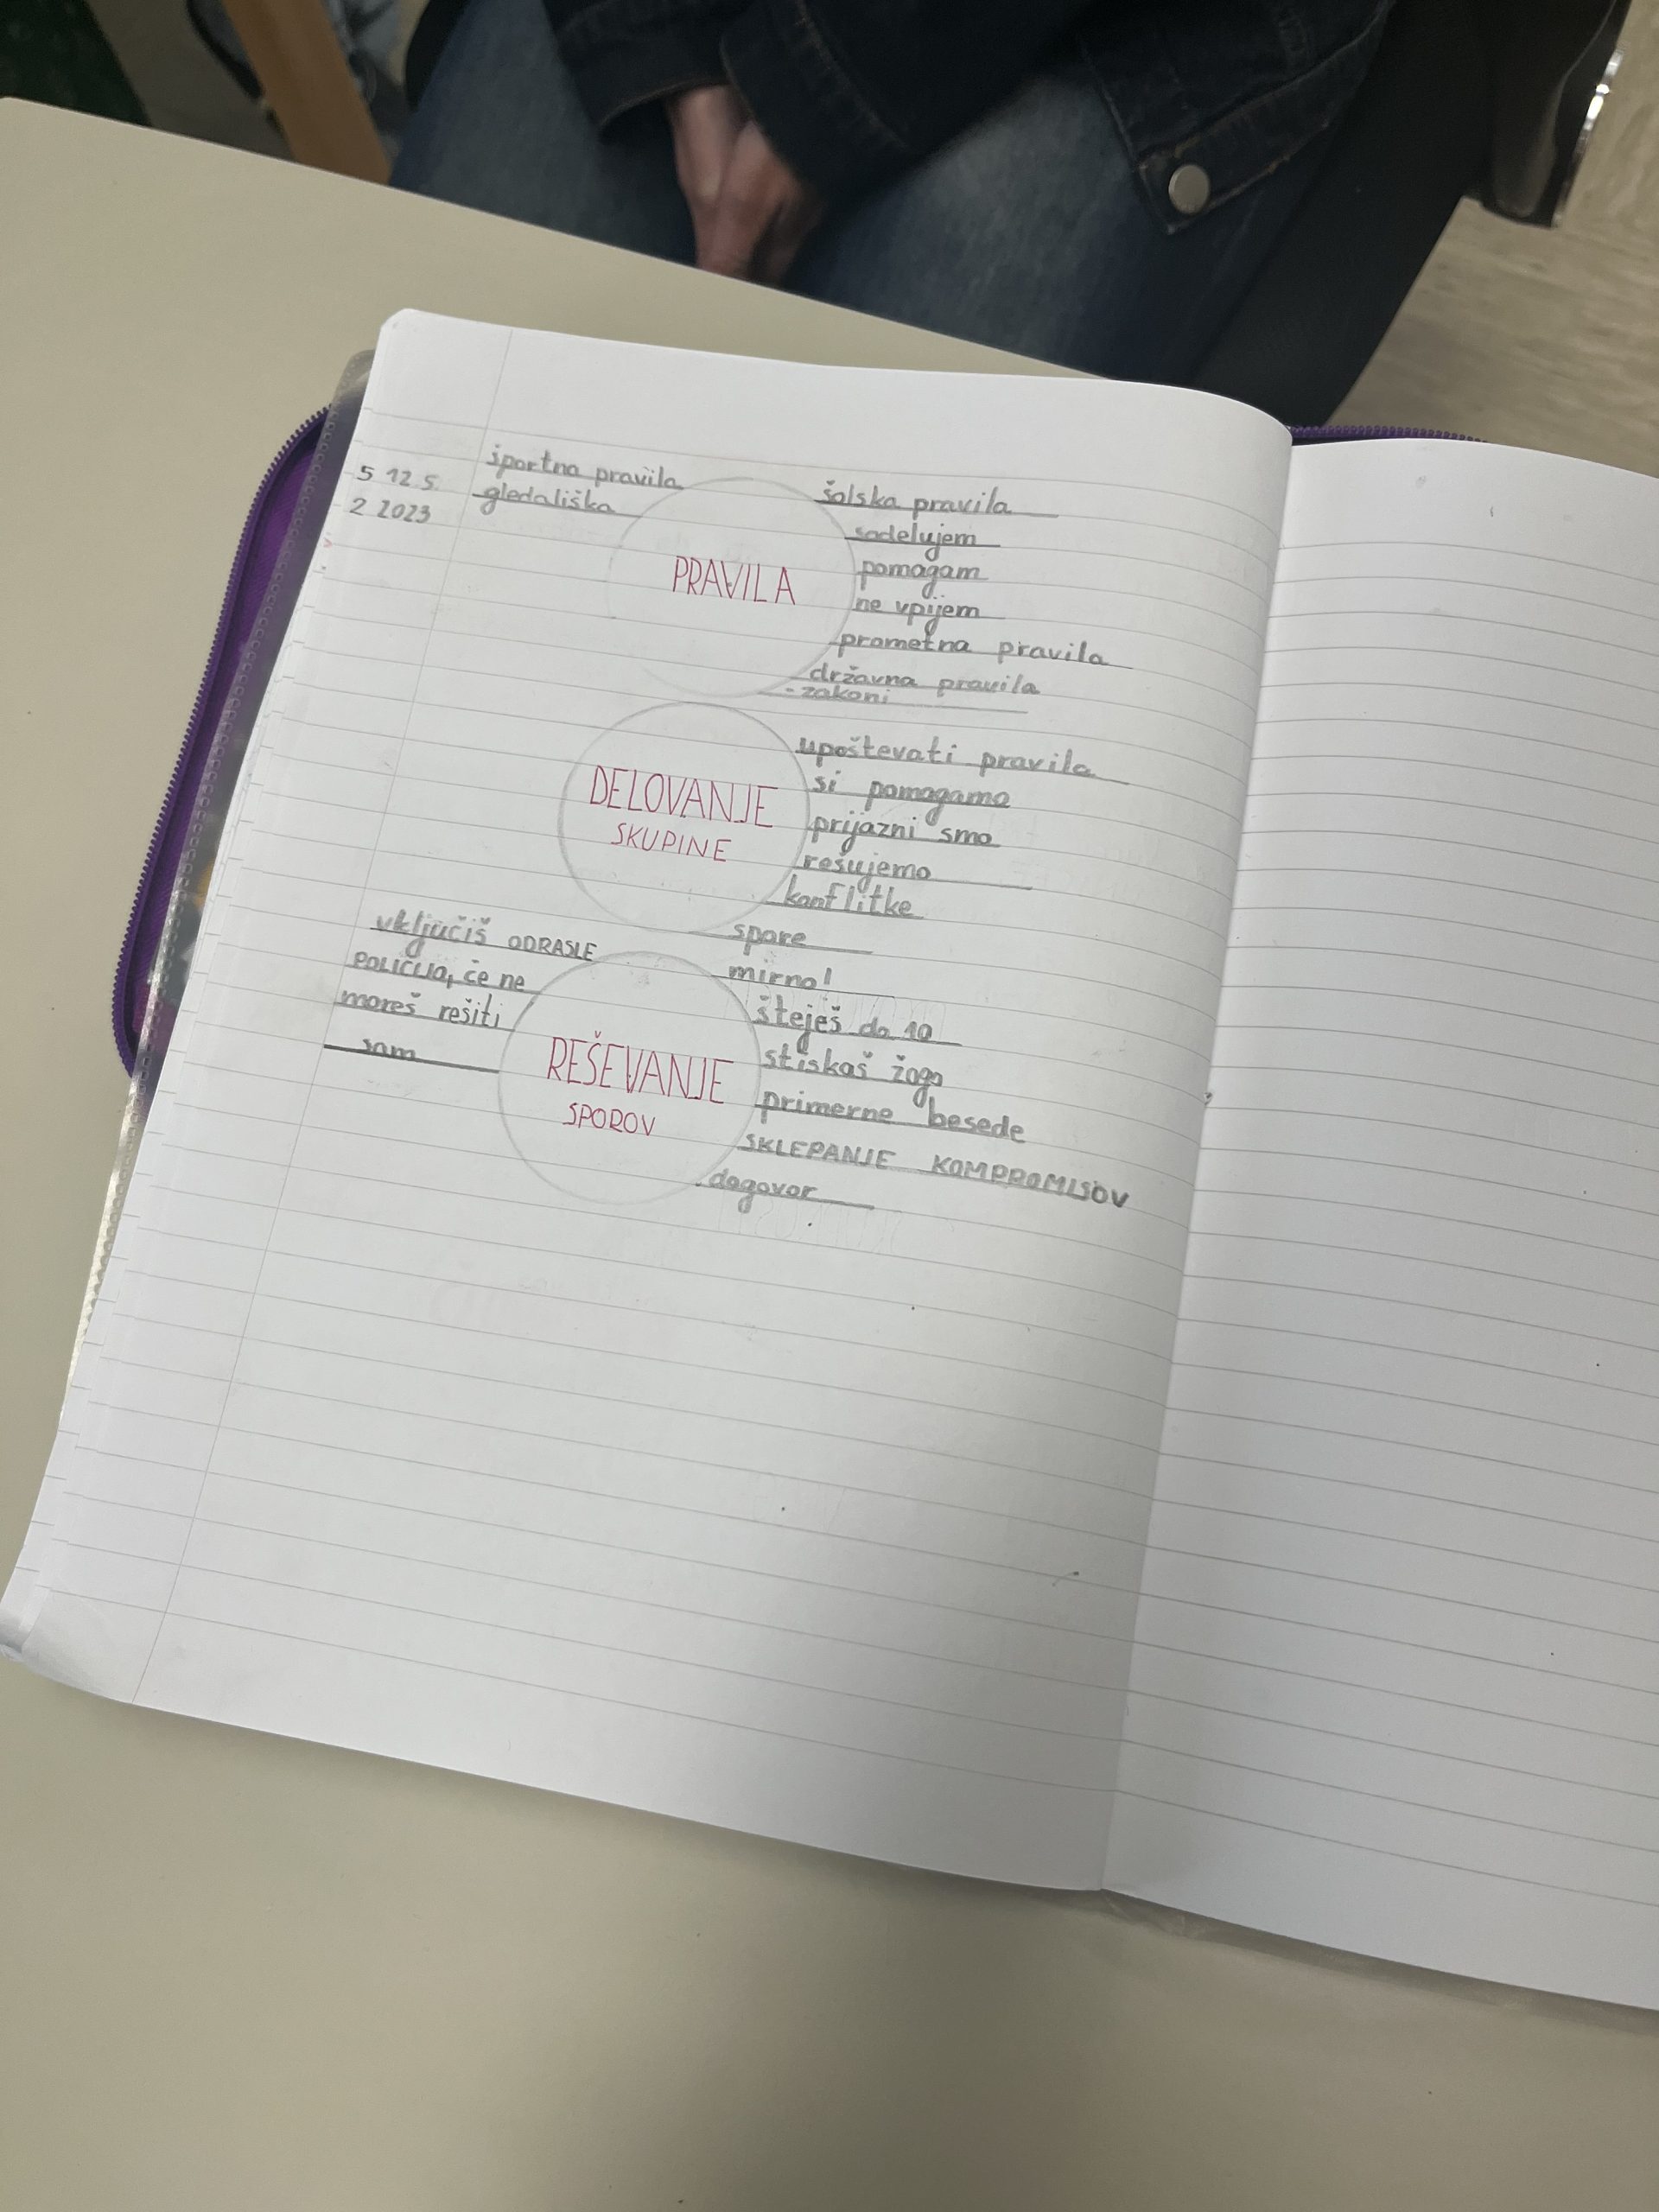 5 12.5.
2 2023
športna pravila
gledališka
PRAVILA
šolska pravila
sodelujem
pomagam
ne vpijem
prometna pravila
državna pravila
- zakoni
DELOVANJE
SKUPINE
upoštevati pravila
si pomagamo
prijazni smo
rešujemo
konflitke
spore
mirno!
vključiš ODRASLE
POLICIJA, če ne
moreš rešiti
sam
REŠEVANJE
SPOROV
šteješ do 10
stiskaš žogo
primerne besede
SKLEPANJE KOMPROMISOV
dogovor